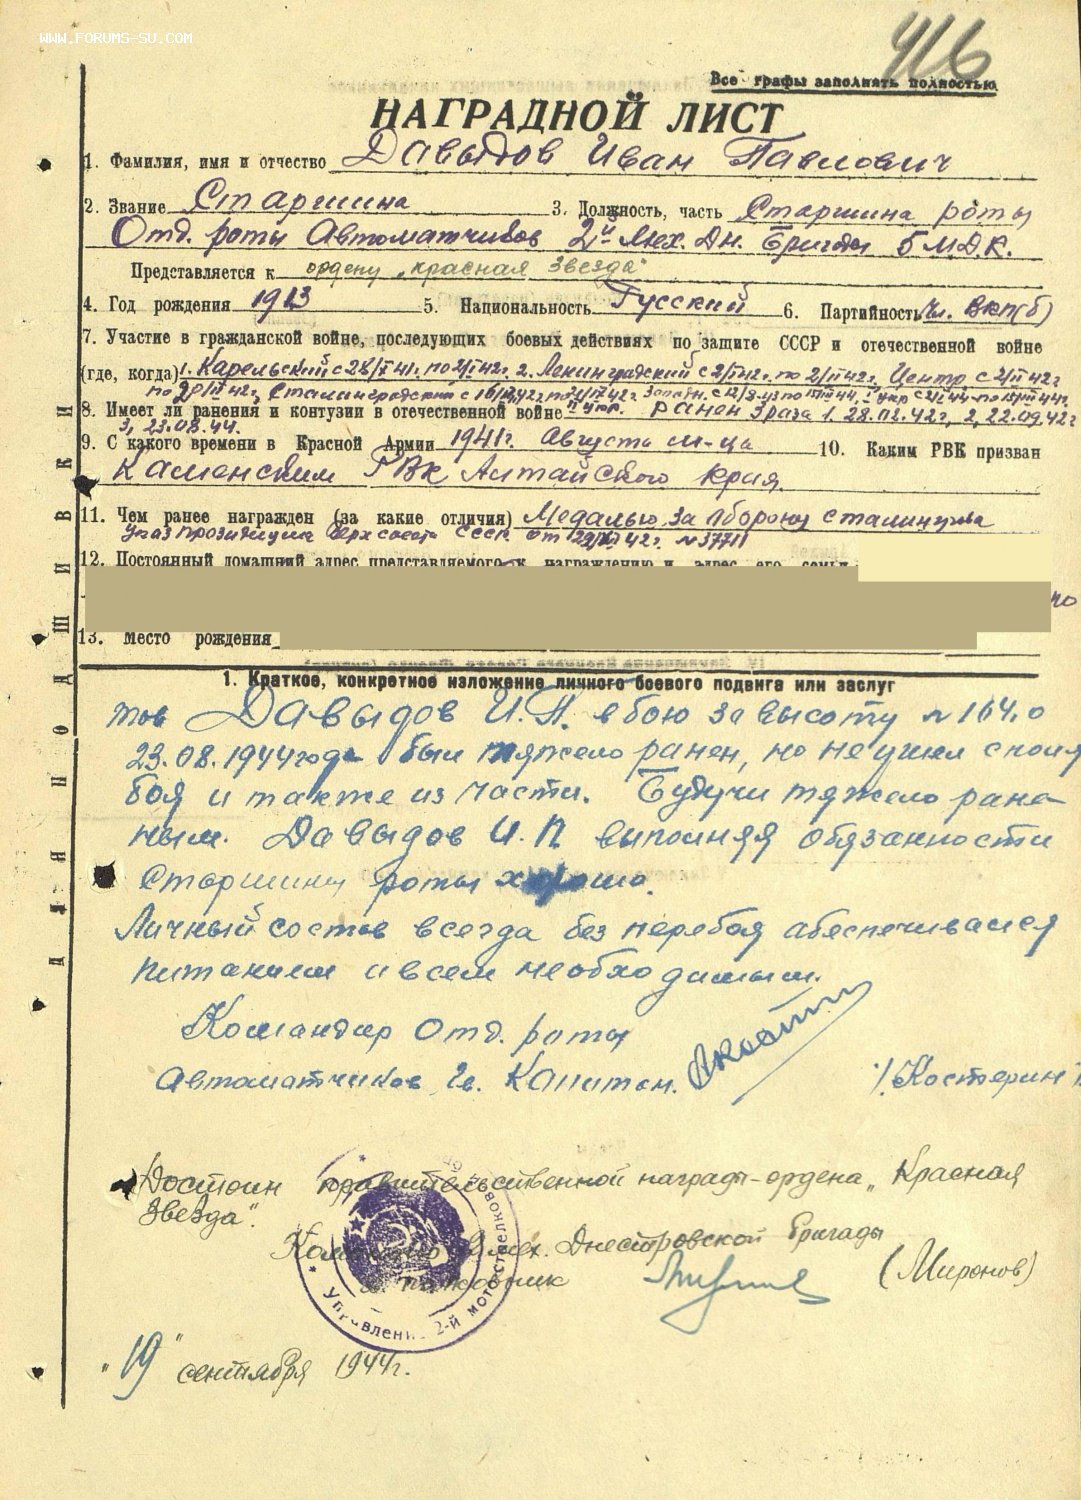 WWW.FORUMS-SU.COM
416
Все графы заполнять полностью
НАГРАДНОЙ ЛИСТ
1. Фамилия, имя и отчество Давыдов Иван Павлович
2. Звание Старшина 3. Должность, часть Старшина роты
Отд. роты Автоматчиков 2й Мех. Дн. Бригады 5 М.Д.К.
Представляется к ордену „Красная Звезда"
4. Год рождения 1913 5. Национальность Русский 6. Партийность Чл. ВКП(б)
7. Участие в гражданской войне, последующих боевых действиях по защите СССР и отечественной войне
(где, когда) 1. Карельский с 28/X 41г. по 2/I 42г. 2. Ленинградский с 2/I 42г. по 2/II 42г, Центр. с 2/II 42г
по 20/II 42г, Сталинградский с
8. Имеет ли ранения и контузии в отечественной войне ранен 3 раза 1. 28.02.42г, 2, 22.09.42г
3, 23.08.44.
9. С какого времени в Красной Армии 1941г. Августа м-ца 10. Каким РВК призван
Каменским РВК Алтайского края.
11. Чем ранее награжден (за какие отличия) Медалью за оборону Сталинграда
Указ Президиума Верх совета СССР. от 42г. №37711
12. Постоянный домашний адрес представляемого к награждению и адрес его семьи
13. Место рождения
ДЛЯ ПОДШИВКИ
1. Краткое, конкретное изложение личного боевого подвига или заслуг
тов Давыдов И.П. в бою за высоту №164.0
23.08.1944 года был тяжело ранен, но не ушел с поля
боя и также из части. Будучи тяжело ране-
ным. Давыдов И.П выполняя обязанности
Старшины роты хорошо.
Личный состав всегда без перебоя абеспечивался
питанием и всем необходимым.
Командир Отд. роты
Автоматчиков Гв. Капитан. /Костерин/
Достоин правительственной награды-ордена „Красная
Звезда".
Командир 2 мех. Днестровской бригады
полковник (Миронов)
* Управление 2-й мотострелковой
„19" сентября 1944г.